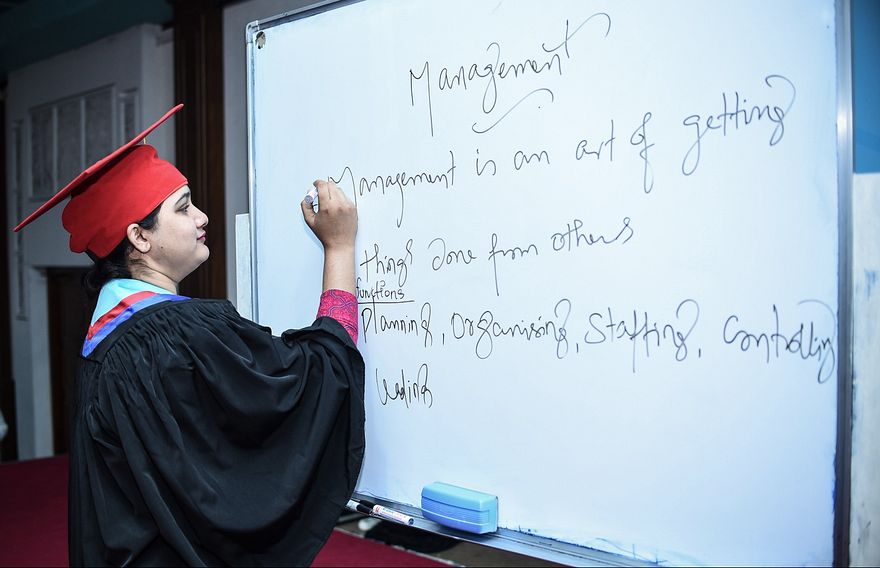 Management
Management is an art of getting
things done from others
functions
Planning, Organising, Staffing, Controlling
Leading